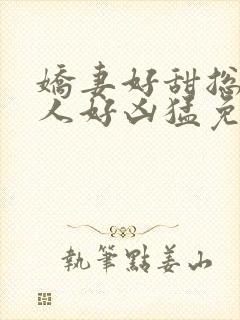 嬌妻好甜
人好凶猛免
執筆點姜山